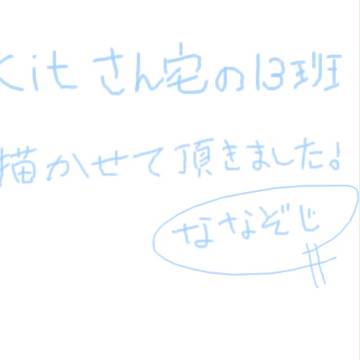 Kitさん宅の13班
描かせて頂きました!
ななぞじ